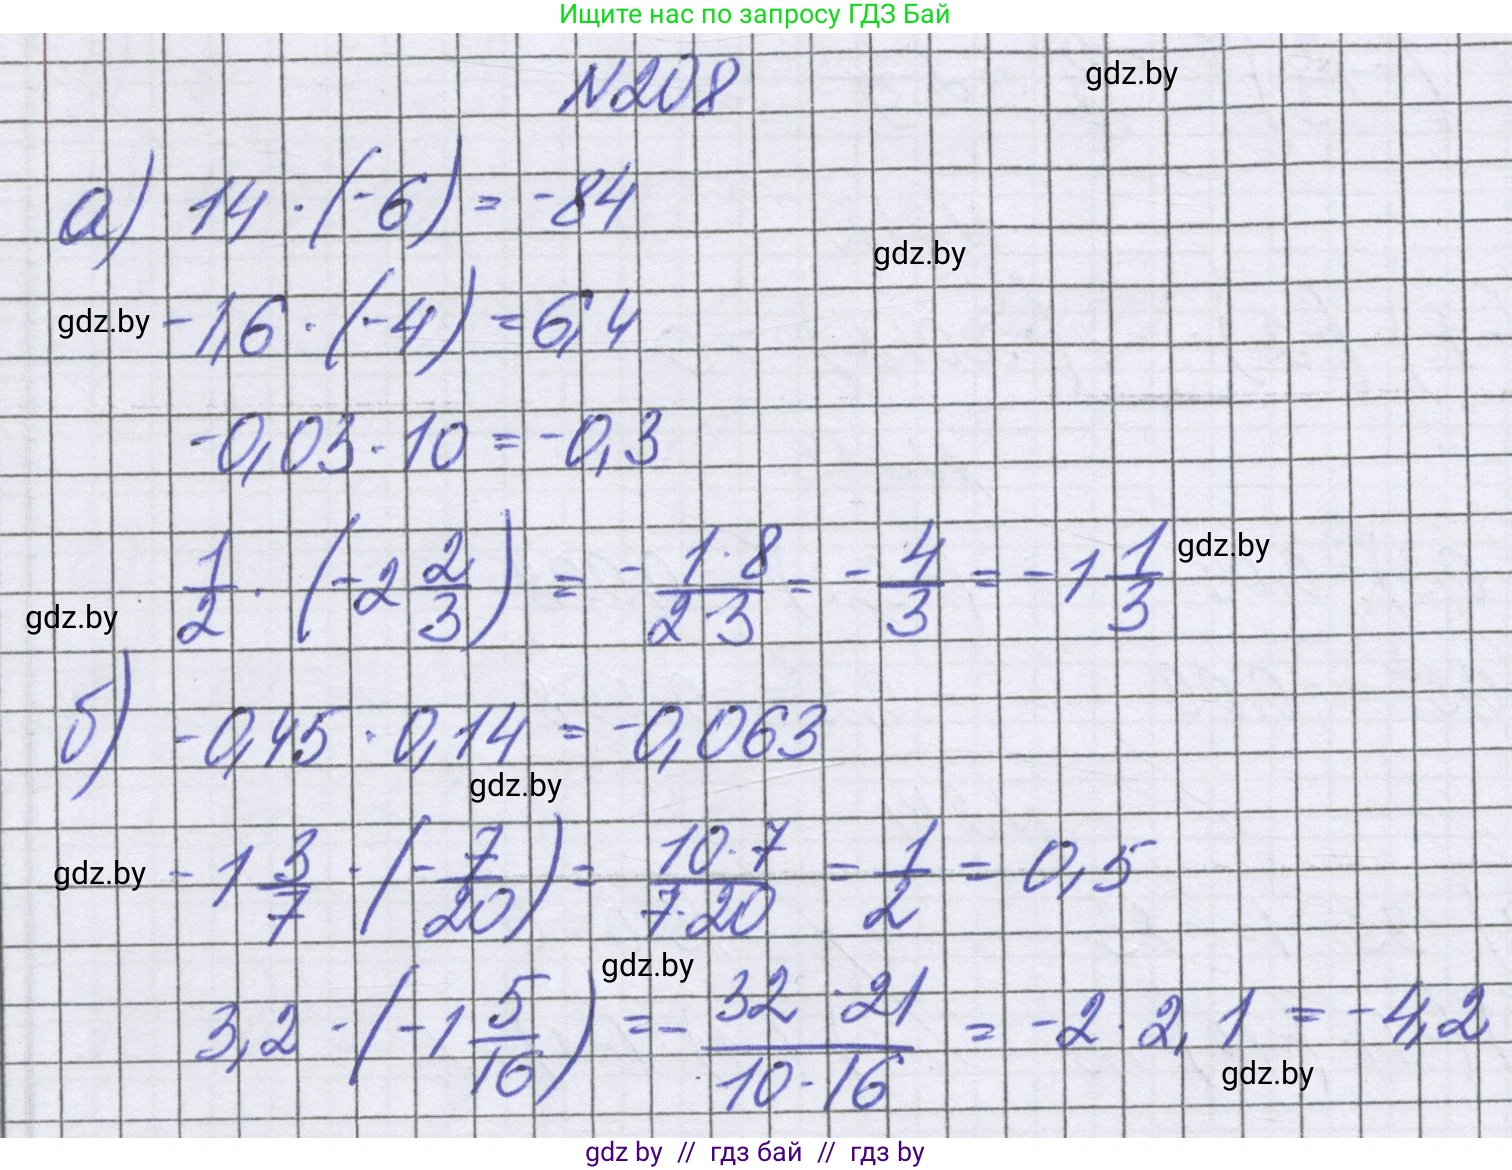 Ищите нас по запросу ГДЗ Бай
N208
gdz.by
а) 14 · (-6) = -84
gdz.by
gdz.by
-1,6 · (-4) = 6,4
-0,03 · 10 = -0,3
1/2 · (-2 2/3) = - 1·8/2·3 = - 4/3 = -1 1/3
gdz.by
gdz.by
б) -0,45 · 0,14 = -0,063
gdz.by
gdz.by
-1 3/7 · (-7/20) = 10·7/7·20 = 1/2 = 0,5
gdz.by
3,2 · (-1 5/16) = - 32·21/10·16 = -2 · 2,1 = -4,2
gdz.by
gdz by // гдз бай // гдз by